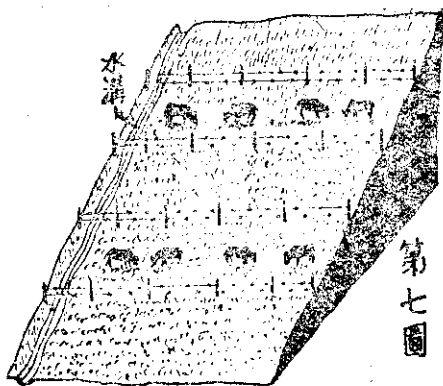 水溝
第七圖